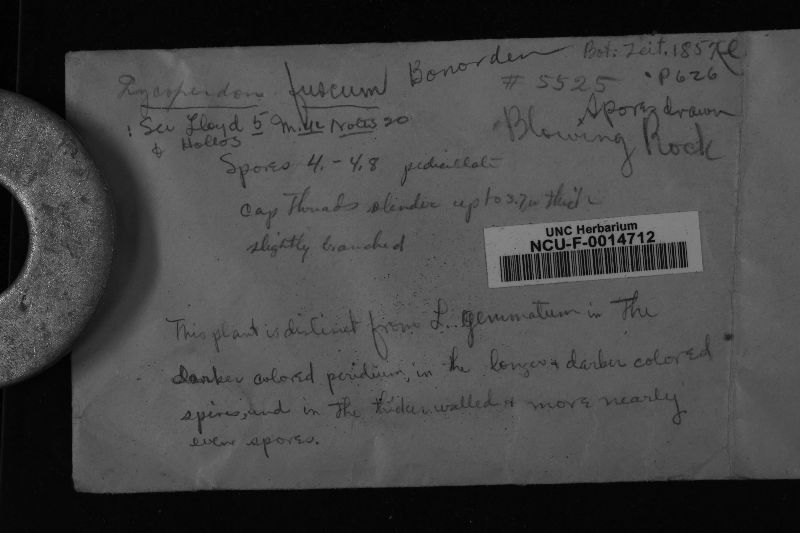 Lycoperdon fuscum Bonorden Bot. Zeit. 1857
# 5525 P 626
! See Lloyd 5 Myc Notes 20
& Hollos
Spores drawn
Blowing Rock
Spores 4.-4.8 pedicillate
Cap Threads slender up to 3.7u thick
slightly branched
UNC Herbarium
NCU-F-0014712
This plant is distinct from L. gemmatum in the
darker colored peridium, in the longer & darker colored
spines, and in the thicker walled & more nearly
even spores.